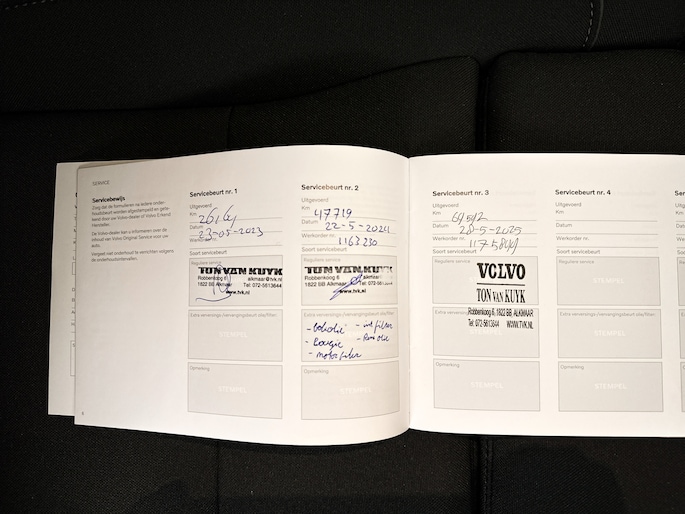 SERVICE
Servicebewijs
Zorg dat de formulieren na iedere onder-
houdsbeurt worden afgestempeld en gete-
kend door uw Volvo-dealer of Volvo Erkend
Hersteller.
De Volvo-dealer kan u informeren over de
inhoud van Volvo Original Service voor uw
auto.
Vergeet niet onderhoud te verrichten volgens
de onderhoudsintervallen.
Servicebeurt nr. 1
Uitgevoerd
Km
Datum 23-05-2023
Werkorder nr.
Soort servicebeurt
Reguliere service
TON VAN KUYK
Robbenkoog 6 alkmaar@tvk.nl
1822 BB Alkmaar Tel: 072-5613644
www.tvk.nl
Extra verversings-/vervangingsbeurt olie/filter:
STEMPEL
Opmerking
STEMPEL
Servicebeurt nr. 2
Uitgevoerd
Km 47719
Datum 22-5-2024
Werkorder nr. 1163230
Soort servicebeurt
Reguliere service
TON VAN KUYK
Robbenkoog 6 alkmaar@tvk.nl
1822 BB Alkmaar Tel: 072-5613644
www.tvk.nl
Extra verversings-/vervangingsbeurt olie/filter:
- Bougie
- motorfilter
Opmerking
STEMPEL
Servicebeurt nr. 3
Uitgevoerd
Km 69592
Datum 28-5-2025
Werkorder nr.
Soort servicebeurt
Reguliere service
VOLVO
TON VAN KUYK
Robbenkoog 6, 1822 BB, ALKMAAR
Tel: 072-5613644 WWW.TVK.NL
Opmerking
STEMPEL
Servicebeurt nr. 4
Uitgevoerd
Km
Datum
Werkorder nr.
Soort servicebeurt
Reguliere service
STEMPEL
Extra verversings-/vervangingsbeurt olie/filter:
STEMPEL
Opmerking
STEMPEL